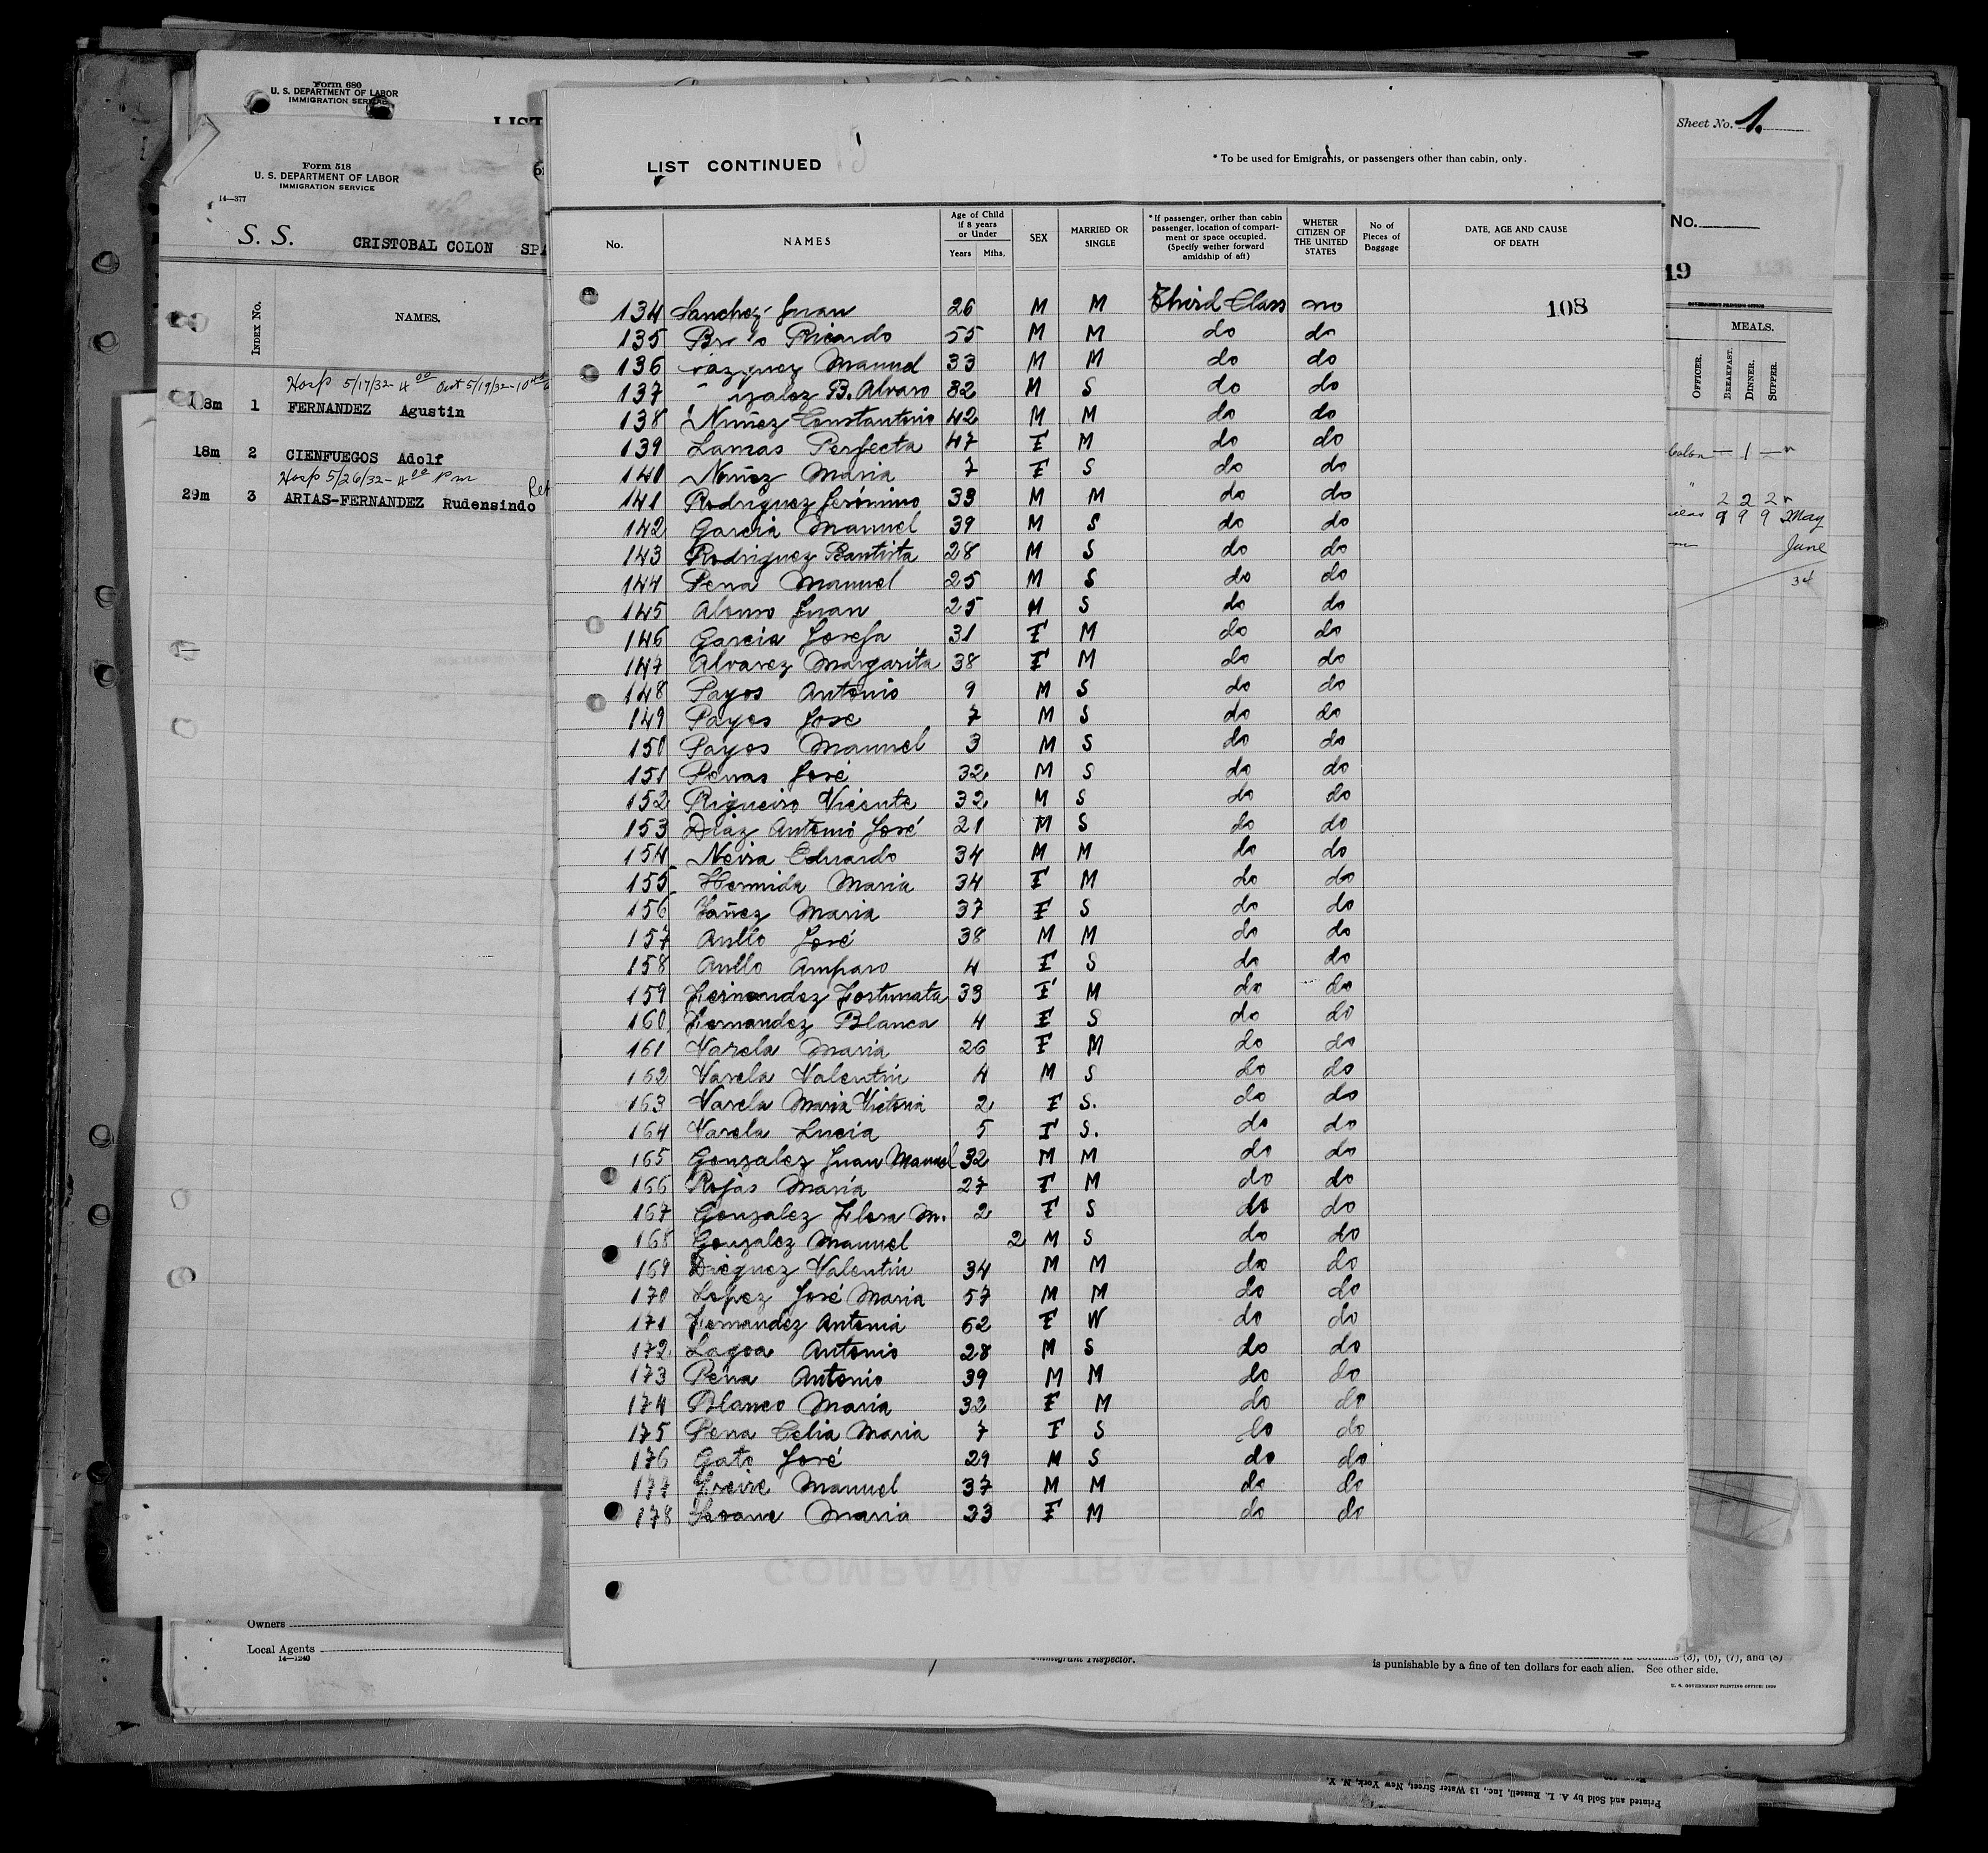 Form 680
U. S. DEPARTMENT OF LABOR
IMMIGRATION SERVICE
LIST
Form 518
U. S. DEPARTMENT OF LABOR
IMMIGRATION SERVICE
14—377
S. S. CRISTOBAL COLON SPA
INDEX No. NAMES.
Hosp 5/17/32 - 4 00 Out 5/19/32 - 10
18m 1 FERNANDEZ Agustin
18m 2 CIENFUEGOS Adolf
Hosp 5/26/32 - 4 00 pm
29m 3 ARIAS-FERNANDEZ Rudensindo
Owners
Local Agents
14—1240
LIST CONTINUED
* To be used for Emigrants, or passengers other than cabin, only.
No. NAMES Age of Child if 8 years or Under Years Mths. SEX MARRIED OR SINGLE * If passenger, orither than cabin passenger, location of compartment or space occupied. (Specify wether forward amidship of aft) WHETER CITIZEN OF THE UNITED STATES No of Pieces of Baggage DATE, AGE AND CAUSE OF DEATH
134 Sanchez Juan 26 M M Third Class no 108
135 Ricardo 55 M M do do
136 Manuel 33 M M do do
137 B. Alvaro 82 M S do do
138 Nuñez Constantino 42 M M do do
139 Lamas Perfecta 47 F M do do
140 Nuñez Maria 7 F S do do
141 Rodriguez Jerónimo 33 M M do do
142 Garcia Manuel 39 M S do do
143 Rodriguez Bautista 28 M S do do
144 Pena Manuel 25 M S do do
145 Alonso Juan 25 M S do do
146 Garcia Josefa 31 F M do do
147 Alvarez Margarita 38 F M do do
148 Payos Antonio 9 M S do do
149 Payos Jose 7 M S do do
150 Payos Manuel 3 M S do do
151 Penas José 32 M S do do
152 Rigueiro Vicente 32 M S do do
153 Diaz Antonio José 21 M S do do
154 Neira Eduardo 34 M M do do
155 Hermida Maria 34 F M do do
156 Yañez Maria 37 F S do do
157 Aullo José 38 M M do do
158 Aullo Amparo 4 F S do do
159 Fernandez Fortunata 33 F M do do
160 Fernandez Blanca 4 F S do do
161 Varela Maria 26 F M do do
162 Varela Valentin 4 M S do do
163 Varela Maria Victoria 2 F S. do do
164 Varela Lucia 5 F S. do do
165 Gonzalez Juan Manuel 32 M M do do
166 Rojas Maria 27 F M do do
167 Gonzalez Flora M. 2 F S do do
168 Gonzalez Manuel 2 M S do do
169 Dieguez Valentin 34 M M do do
170 Lopez José Maria 57 M M do do
171 Fernandez Antonia 62 F W do do
172 Lagoa Antonio 28 M S do do
173 Pena Antonio 39 M M do do
174 Blanco Maria 32 F M do do
175 Pena Celia Maria 7 F S do do
176 Gato José 29 M S do do
177 Freire Manuel 37 M M do do
178 Seoane Maria 33 F M do do
COMPAÑIA TRASATLANTICA
Immigrant Inspector.
Sheet No. 1.
No.
19
GOVERNMENT PRINTING OFFICE
MEALS.
OFFICER. BREAKFAST. DINNER. SUPPER.
Colon — 1 —
2 2 2
9 9 9 May
June
34
(3), (6), (7), and (8)
is punishable by a fine of ten dollars for each alien. See other side.
U. S. GOVERNMENT PRINTING OFFICE: 1929
Printed and Sold by A. L. Russell, Inc., 13 Water Street, New York, N. Y.